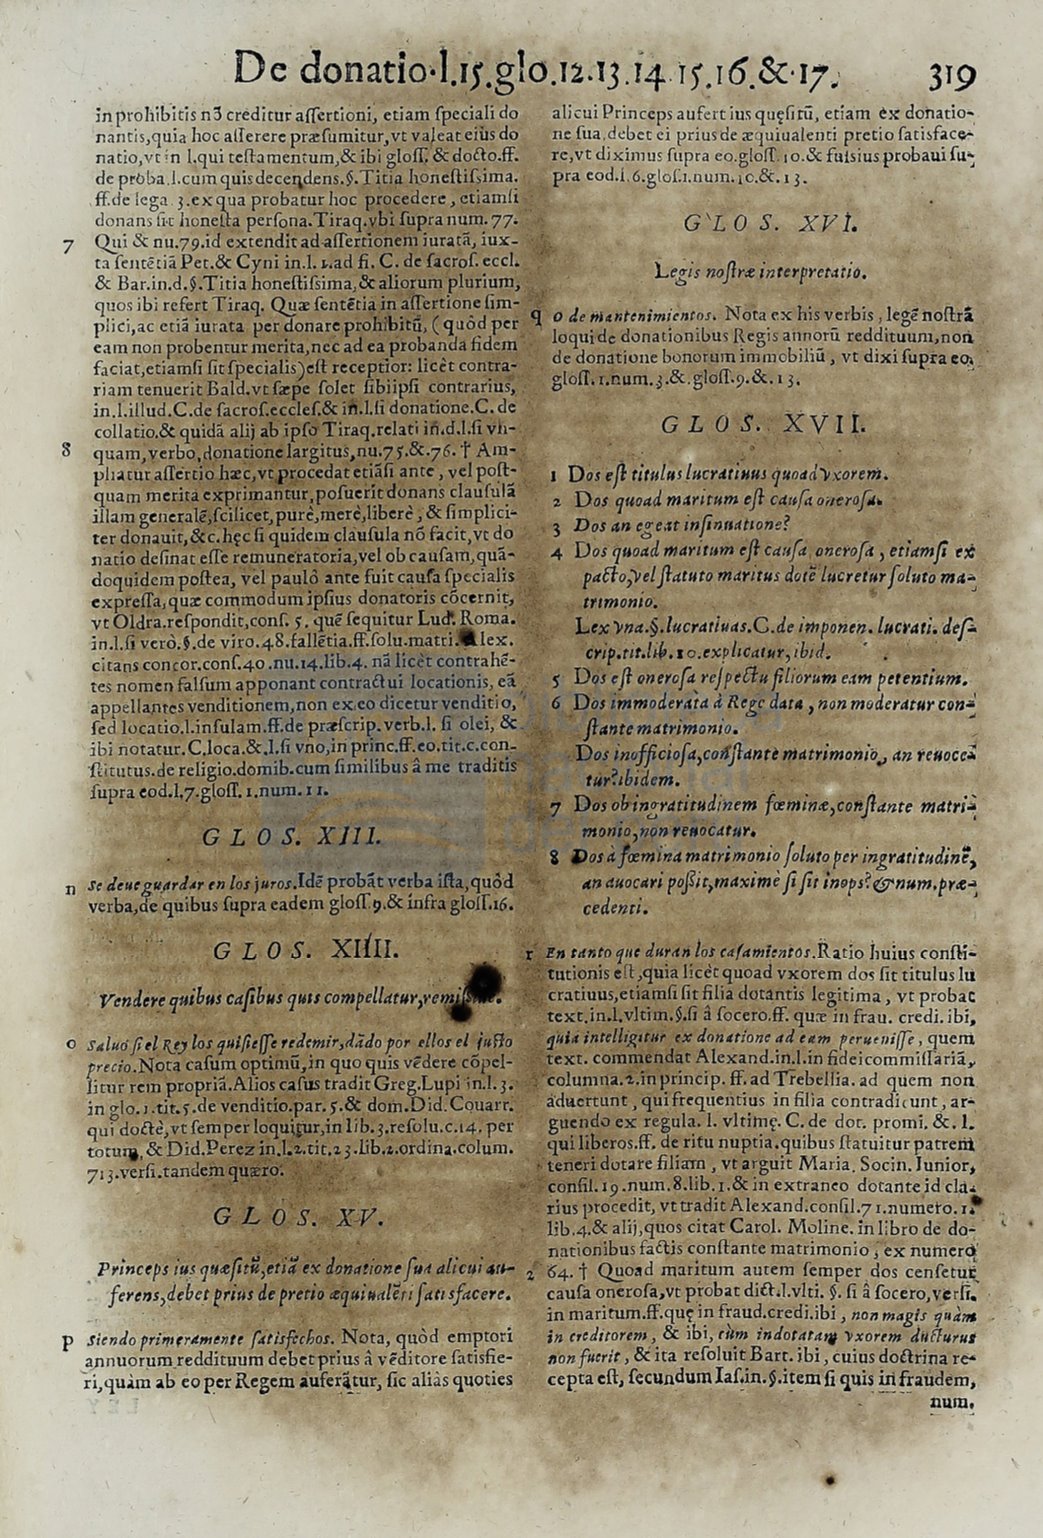 De donatio.l.15.glo.12.13.14.15.16.&.17. 319
in prohibitis nõ creditur aſſertioni, etiam ſpeciali do
nantis,quia hoc aſſerere præſumitur,vt valeat eius do
natio,vt in l.qui teſtamentum,& ibi gloſſ. & docto.ff.
de proba.l.cum quis decendens.§.Titia honeſtiſsima.
ff.de lega 3.ex qua probatur hoc procedere, etiamſi
donans ſit honeſta perſona.Tiraq.vbi ſupra num.77.
7 Qui & nu.79.id extendit ad aſſertionem iuratã, iux-
ta ſentẽtiã Pet.& Cyni in.l.1.ad fi. C. de ſacroſ. eccl.
& Bar.in.d.§.Titia honeſtiſsima,& aliorum plurium,
quos ibi refert Tiraq. Quæ ſentẽtia in aſſertione ſim-
plici,ac etiã iurata per donare prohibitũ, (quòd per
eam non probentur merita,nec ad ea probanda fidem
faciat,etiamſi ſit ſpecialis)eſt receptior: licèt contra-
riam tenuerit Bald.vt ſæpe ſolet ſibiipſi contrarius,
in.l.illud.C.de ſacroſ.eccleſ.& in.l.ſi donatione.C. de
collatio.& quidã alij ab ipſo Tiraq.relati in.d.l.ſi vn-
8 quam,verbo,donatione largitus,nu.75.&.76. † Am-
pliatur aſſertio hæc,vt procedat etiãſi ante, vel poſt-
quam merita exprimantur,poſuerit donans clauſulã
illam generalẽ,ſcilicet,purè,merè,liberè, & ſimplici-
ter donauit,&c.hęc ſi quidem clauſula nõ facit,vt do
natio deſinat eſſe remuneratoria,vel ob cauſam,quã-
doquidem poſtea, vel paulò ante fuit cauſa ſpecialis
expreſſa,quæ commodum ipſius donatoris cõcernit,
vt Oldra.reſpondit,conſ. 5. quẽ ſequitur Lud. Roma.
in.l.ſi verò.§.de viro.48.fallẽtia.ff.ſolu.matri. Alex.
citans concor.conſ.40.nu.14.lib.4. nã licèt contrahẽ-
tes nomen falſum apponant contractui locationis, eã
appellantes venditionem,non ex eo dicetur venditio,
ſed locatio.l.inſulam.ff.de præſcrip.verb.l. ſi olei, &
ibi notatur.C.loca.&.l.ſi vno,in princ.ff.eo.tit.c.con-
ſtitutus.de religio.domib.cum ſimilibus â me traditis
ſupra eod.l.7.gloſſ.1.num.11.
GLOS. XIII.
n Se deue guardar en los juros.Idẽ probãt verba iſta,quòd
verba,de quibus ſupra eadem gloſſ.9.& infra gloſſ.16.
GLOS. XIIII.
Vendere quibus caſibus quis compellatur,
o Saluo ſi el Rey los quiſieſſe redemir,dãdo por ellos el juſto
precio.Nota caſum optimũ,in quo quis vẽdere cõpel-
litur rem propriã.Alios caſus tradit Greg.Lupi in.l.3.
in glo.1.tit.5.de venditio.par.5.& dom.Did.Couarr.
qui doctè,vt ſemper loquitur,in lib.3.reſolu.c.14. per
totum, & Did.Perez in.l.2.tit.23.lib.2.ordina.colum.
713.verſi.tandem quæro.
GLOS. XV.
Princeps ius quæſitũ,etiã ex donatione ſua alicui au-
ferens,debet prius de pretio æquiualẽti ſatisfacere.
p Siendo primeramente ſatisfechos. Nota, quòd emptori
annuorum reddituum debet prius â vẽditore ſatisfie-
ri,quàm ab eo per Regem auferãtur, ſic aliàs quoties
alicui Princeps aufert ius quęſitũ, etiam ex donatio-
ne ſua,debet ei prius de æquiualenti pretio ſatisface-
re,vt diximus ſupra eo.gloſſ.10.& fuſius probaui ſu-
pra eod.l.6.gloſ.1.num.10.&.13.
GLOS. XVI.
Legis noſtræ interpretatio.
q O de mantenimientos. Nota ex his verbis, legẽ noſtrã
loqui de donationibus Regis annorũ reddituum,non
de donatione bonorum immobiliũ, vt dixi ſupra eo.
gloſſ.1.num.3.&.gloſſ.9.&.13.
GLOS. XVII.
1 Dos eſt titulus lucratiuus quoad vxorem.
2 Dos quoad maritum eſt cauſa oneroſa.
3 Dos an egeat inſinuatione?
4 Dos quoad maritum eſt cauſa oneroſa, etiamſi ex
pacto,vel ſtatuto maritus dotẽ lucretur ſoluto ma-
trimonio.
Lex vna.§.lucratiuas.C.de imponen. lucrati. deſ-
crip.tit.lib.10.explicatur,ibid.
5 Dos eſt oneroſa reſpectu filiorum eam petentium.
6 Dos immoderata à Rege data, non moderatur con-
ſtante matrimonio.
Dos inofficioſa,conſtante matrimonio, an reuoce-
tur?ibidem.
7 Dos ob ingratitudinem fœminæ,conſtante matri-
monio,non reuocatur.
8 Dos à fœmina matrimonio ſoluto per ingratitudinẽ,
an auocari poßit,maximè ſi ſit inops?& num.præ-
cedenti.
r En tanto que duran los caſamientos.Ratio huius conſti-
tutionis eſt,quia licèt quoad vxorem dos ſit titulus lu
cratiuus,etiamſi ſit filia dotantis legitima, vt probat
text.in.l.vltim.§.ſi â ſocero.ff. quæ in frau. credi. ibi,
quia intelligitur ex donatione ad eam perueniſſe, quem
text. commendat Alexand.in.l.in fideicommiſſariã,
columna.2.in princip. ff. ad Trebellia. ad quem non
aduertunt, qui frequentius in filia contradicunt, ar-
guendo ex regula. l. vltimę. C. de dot. promi. &. l.
qui liberos.ff. de ritu nuptia.quibus ſtatuitur patrem
teneri dotare filiam, vt arguit Maria. Socin. Iunior,
conſil.19.num.8.lib.1.& in extraneo dotante id cla-
rius procedit, vt tradit Alexand.conſil.71.numero.1.
lib.4.& alij,quos citat Carol. Moline. in libro de do-
nationibus factis conſtante matrimonio, ex numero
2 64. † Quoad maritum autem ſemper dos cenſetur
cauſa oneroſa,vt probat dict.l.vlti. §. ſi â ſocero,verſi.
in maritum.ff.quę in fraud.credi.ibi, non magis quàm
in creditorem, & ibi, cùm indotatam vxorem ducturus
non fuerit, & ita reſoluit Bart. ibi, cuius doctrina re-
cepta eſt, ſecundum Iaſ.in.§.item ſi quis in fraudem,
num.